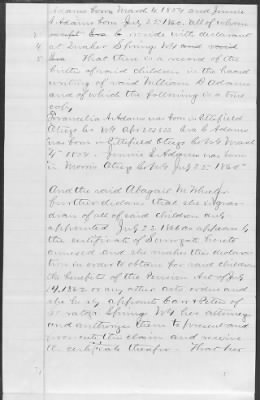 Adams born March 4 1854 and Jennie
S Adams born July 25 1860. all of whom
except Eva C reside with declarant
4 at Quaker Springs NY and said
5 Eva That there is a record of the
birth of said children in the hand
writing of said William C Adams
and of which the following is a true
copy
A Adams was born in Littlefield
Otsego Co NY Apr 2 Eva C Adams
was born in Littlefield Otsego Co NY March
4th 1854. Jennie S Adams was born
in Morris Otsego Co NY July 25. 1860"
And the said Abagail M Wheeler
further declares that she is guar-
dian of all of said children
appointed July 22 1866 as appears by
the certificate of Surrogate hereto
annexed and she makes this declara-
tion in order to obtain for said children
the benefits of the Pension Act of July
14. 1862 or any other acts
she hereby appoints Carr &
of Saratoga Springs NY her attorneys
and authorizes them to present and
prosecute this claim and receive
the certificate therefor. That her